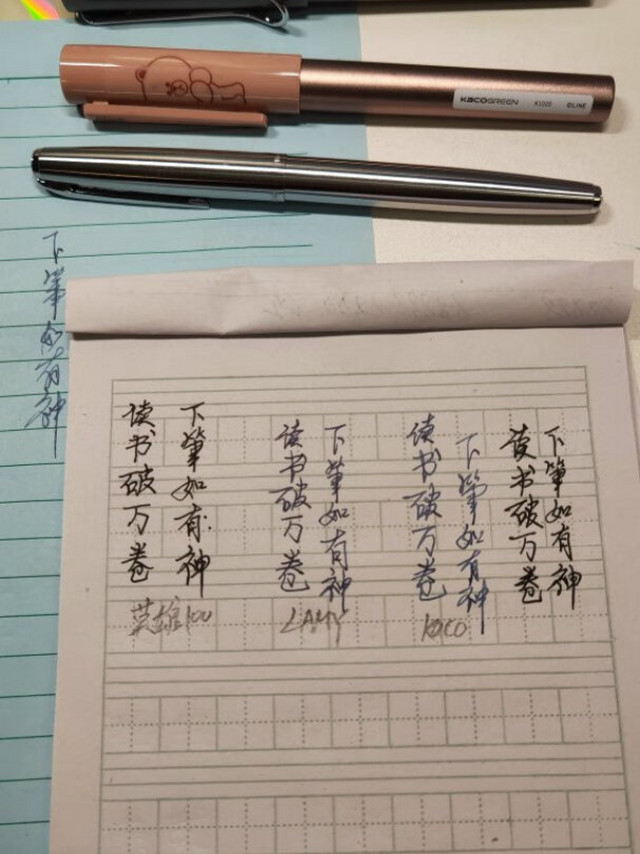 KACOGREEN K1020 ©LINE
下筆如有神
读书破万卷
下筆如有神
读书破万卷
下筆如有神
读书破万卷
下筆如有神
读书破万卷
下筆如有神
英雄100
LAMY
KACO